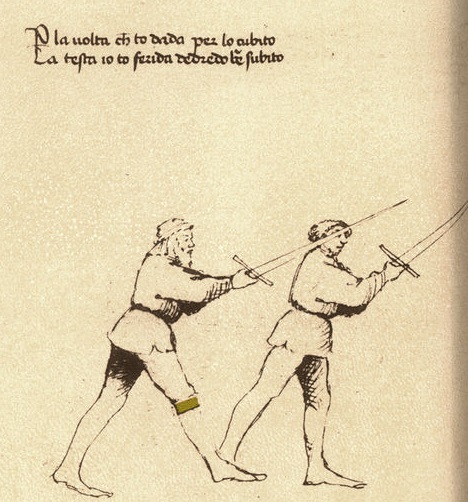 P la uolta ch to dada per lo cubito
La testa io to ferida dedredo bē subito